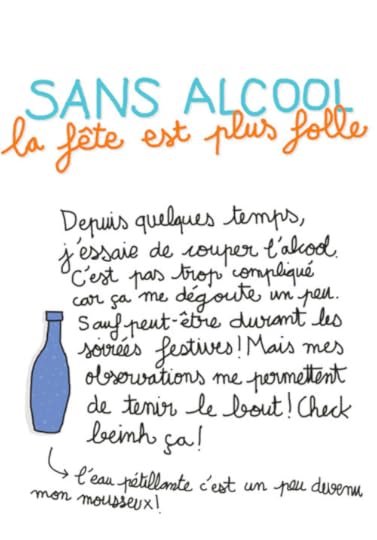 SANS ALCOOL
la fête est plus folle
Depuis quelques temps,
j'essaie de couper l'alcool.
C'est pas trop compliqué
car ça me dégoute un peu.
Sauf peut-être durant les
soirées festives! Mais mes
observations me permettent
de tenir le bout! Check
beinh ça!
l'eau pétillante c'est un peu devenu
mon mousseux!